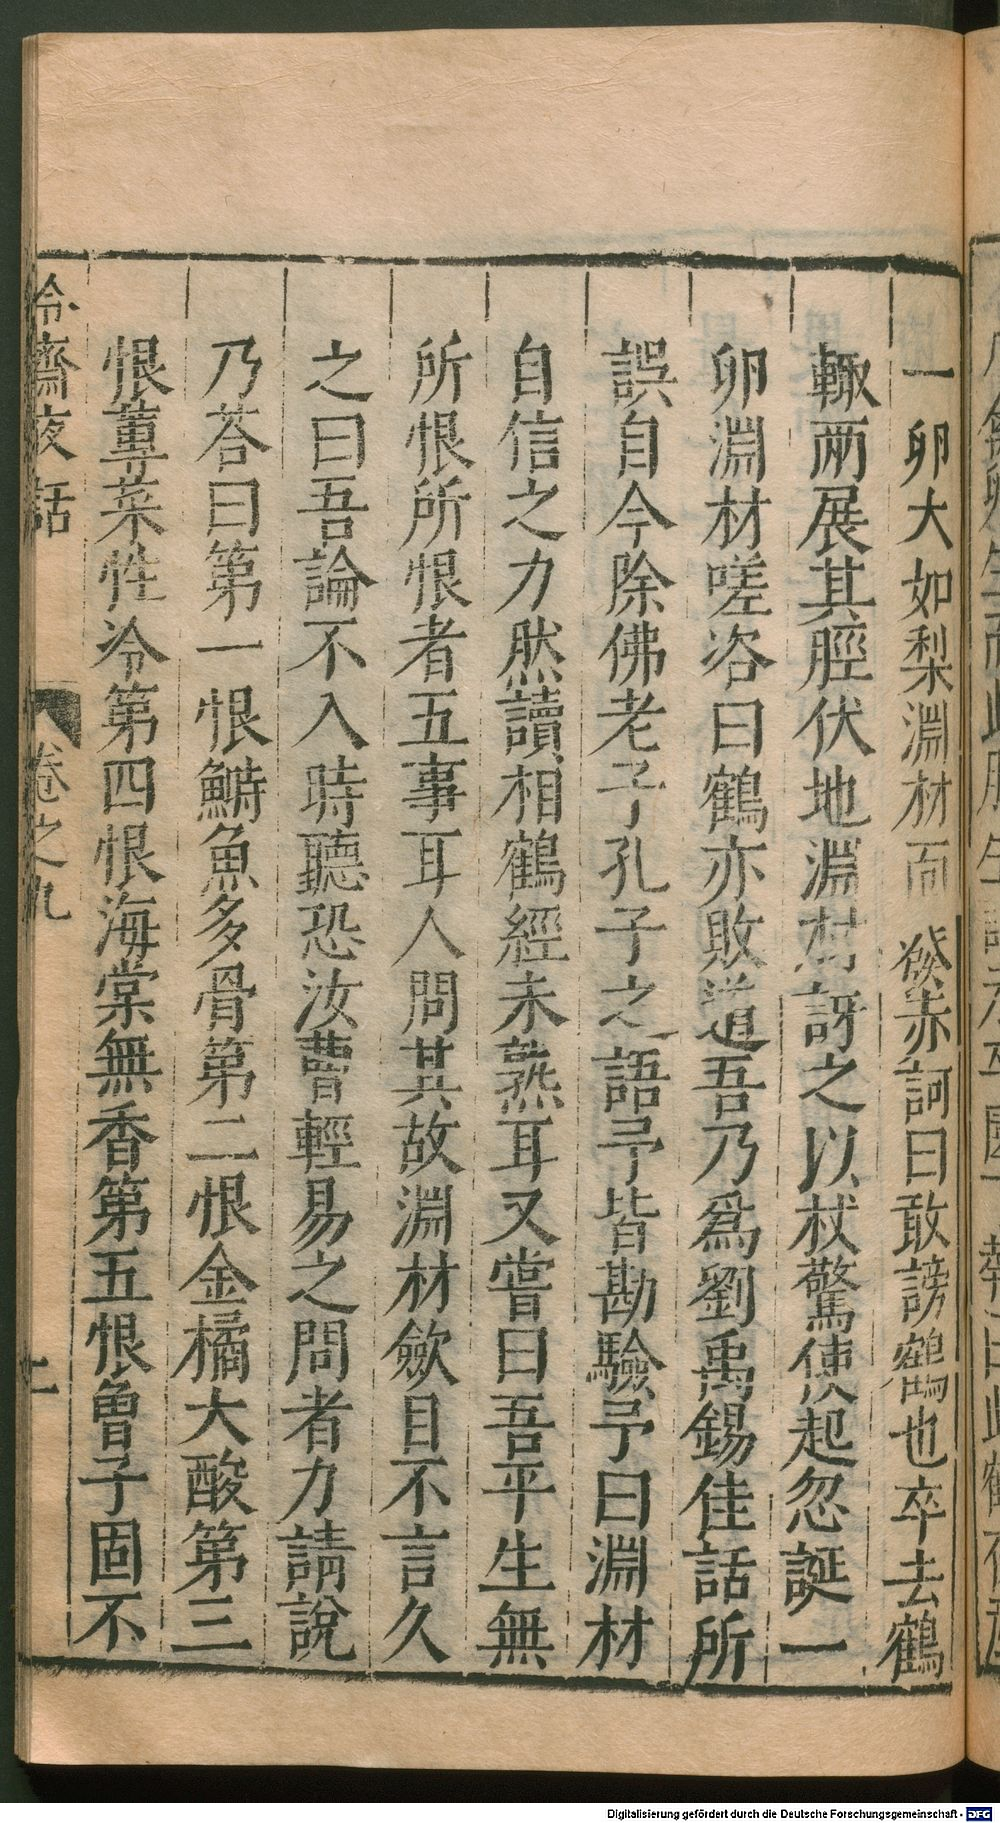 一卵大如梨淵材面發赤訶曰敢謗鶴也卒去鶴
輙兩展其脛伏地淵材訝之以杖驚使起忽誕一
卵淵材嗟咨曰鶴亦敗道吾乃爲劉禹錫佳話所
誤自今除佛老子孔子之語予皆勘驗予曰淵材
自信之力然讀相鶴經未熟耳又嘗曰吾平生無
所恨所恨者五事耳人問其故淵材歛目不言久
之曰吾論不入時聽恐汝曹輕易之問者力請說
乃荅曰第一恨鰣魚多骨第二恨金橘大酸第三
恨蓴菜性冷第四恨海棠無香第五恨曾子固不
冷齋夜話
卷之九
Digitalisierung gefördert durch die Deutsche Forschungsgemeinschaft - DFG